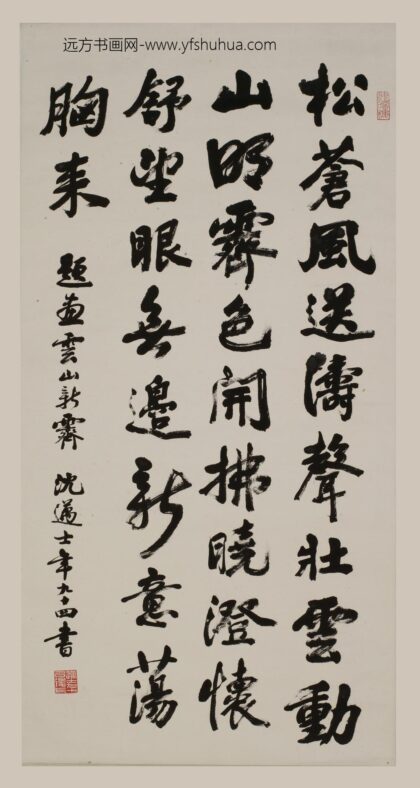 远方书画网-www.yfshuhua.com
松蒼風送濤聲壯雲動
山明霽色開拂曉澄懷
舒望眼無邊新意蕩
胸来
題畫雲山新霽 沈邁士年九十四書